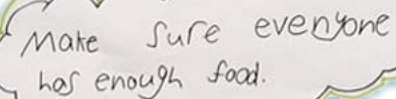 Make sure everyone
has enough food.